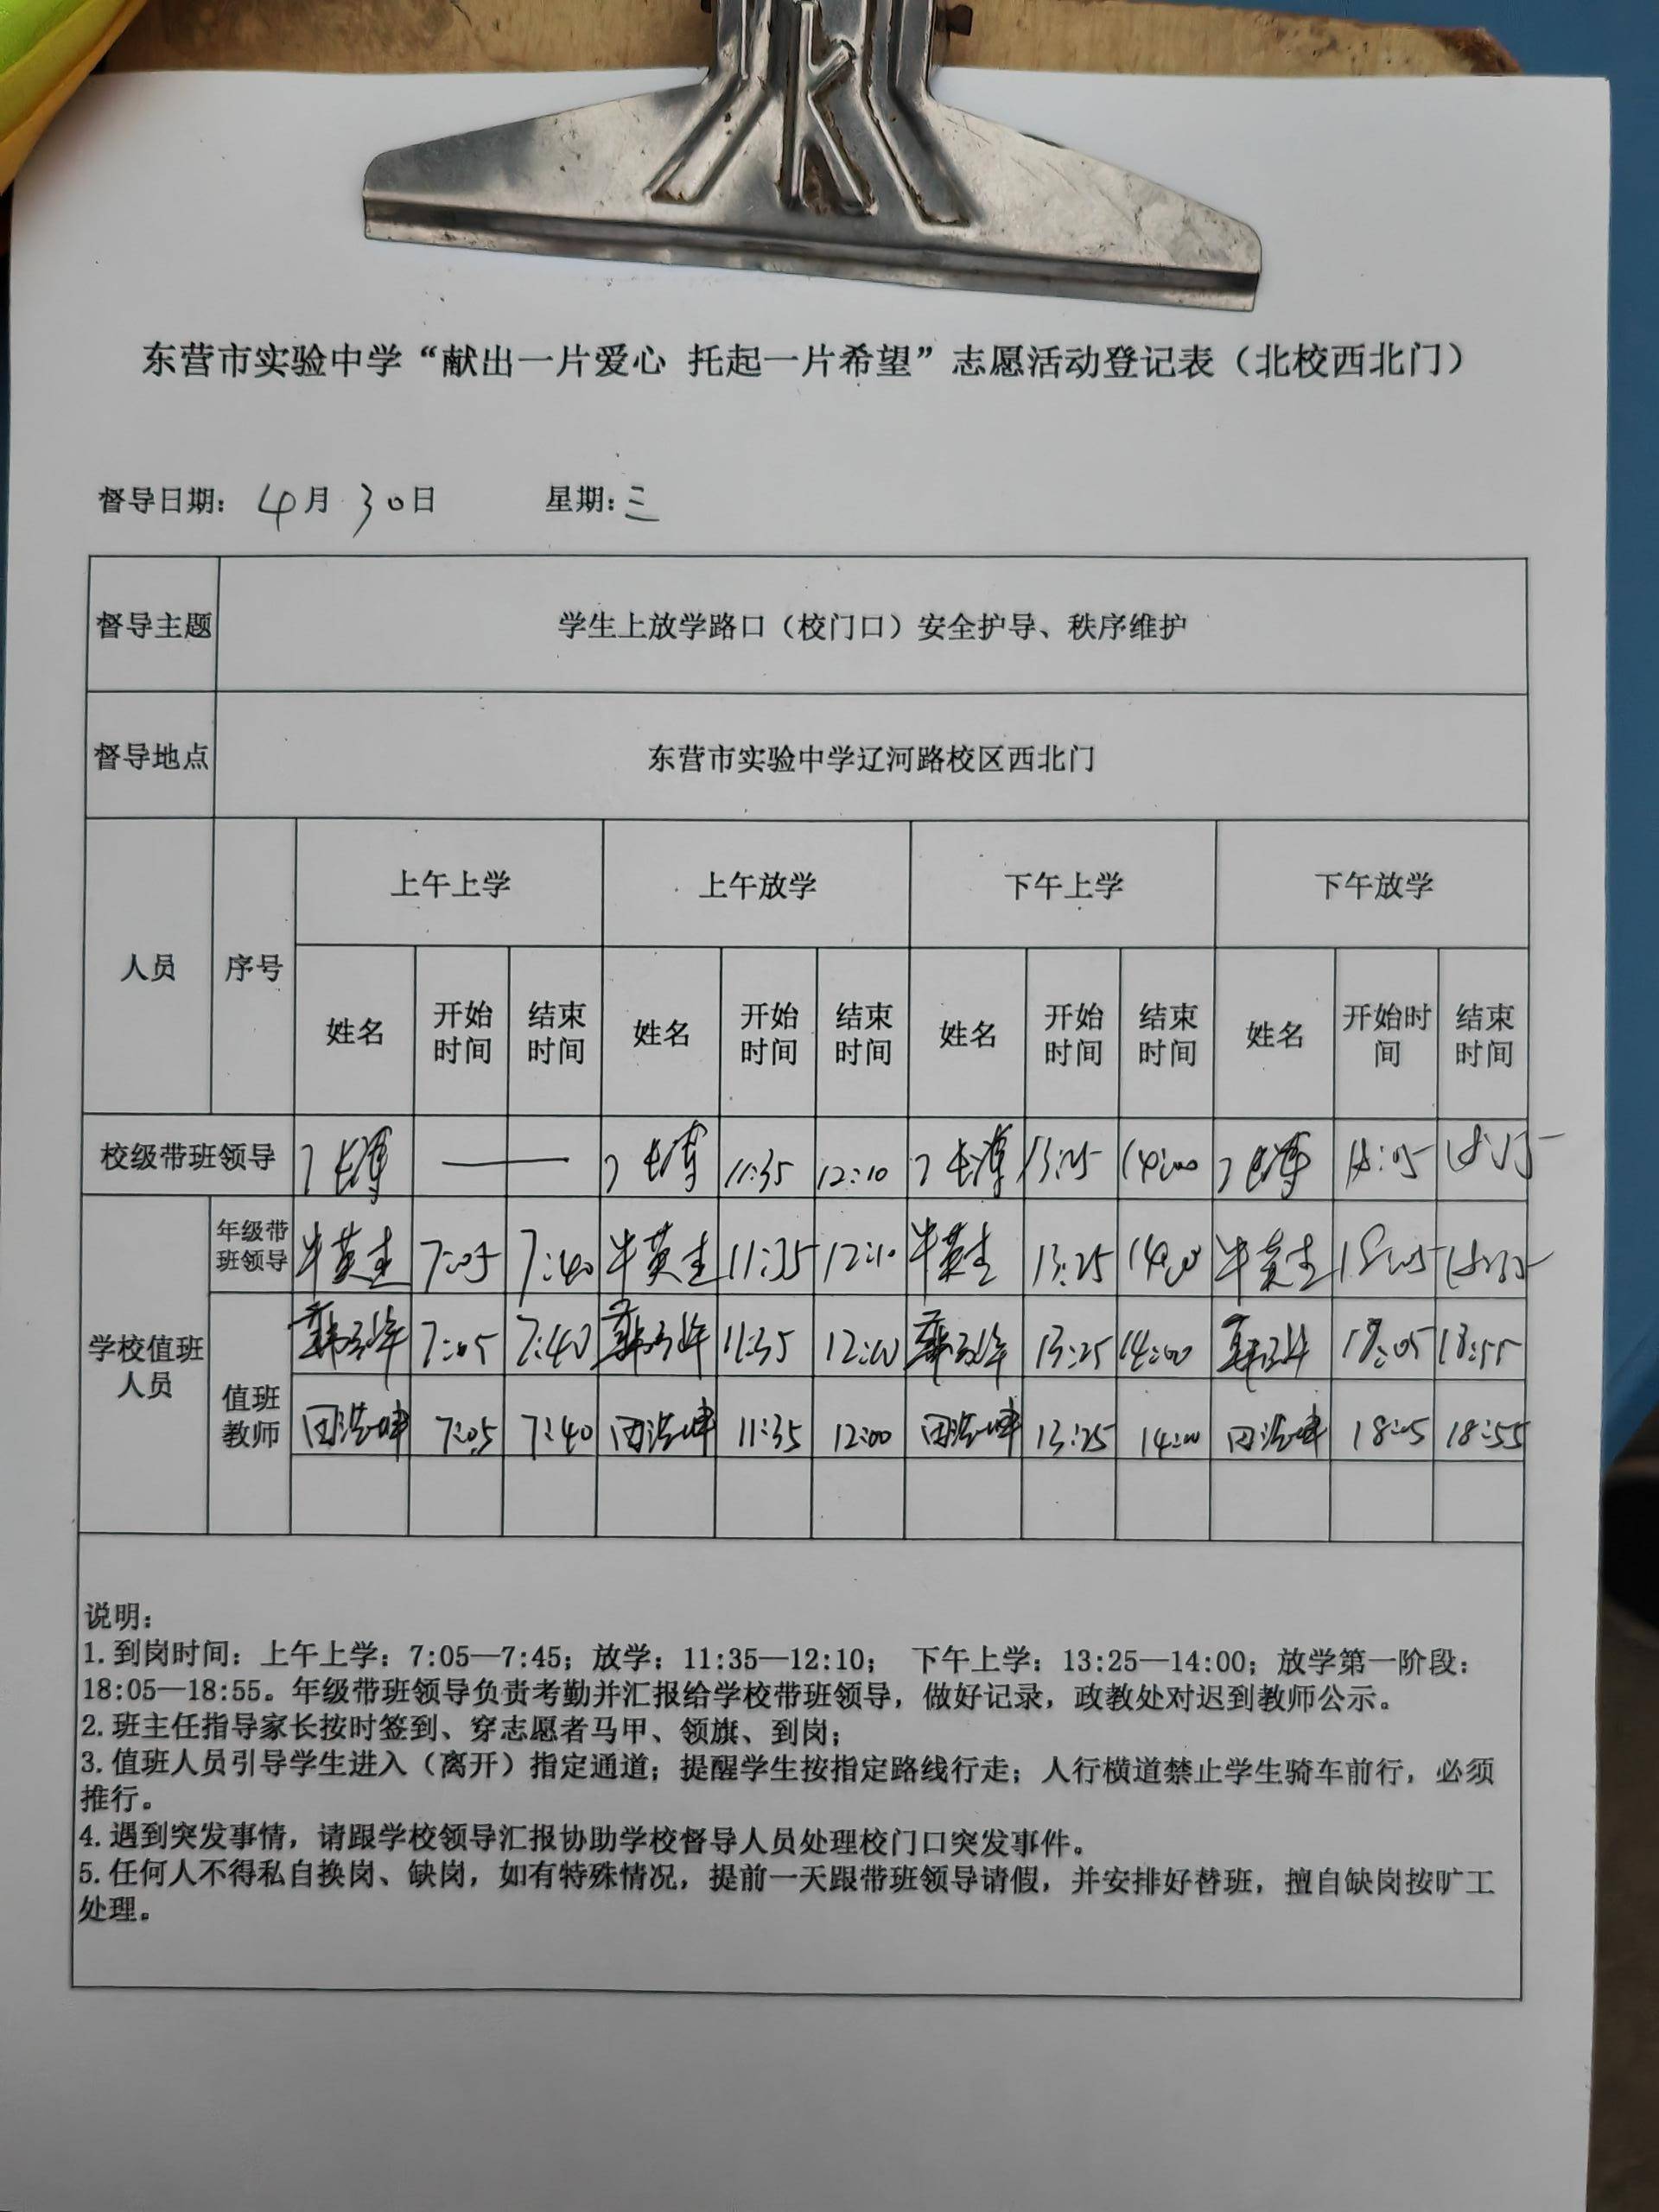 东营市实验中学“献出一片爱心 托起一片希望”志愿活动登记表（北校西北门）
督导日期：4月30日 星期：三
督导主题 学生上放学路口（校门口）安全护导、秩序维护
督导地点 东营市实验中学辽河路校区西北门
人员 序号 上午上学 上午放学 下午上学 下午放学
姓名 开始时间 结束时间 姓名 开始时间 结束时间 姓名 开始时间 结束时间 姓名 开始时间 结束时间
校级带班领导 —— 11:35 12:10 13:25 14:00 18:05
学校值班人员
年级带班领导 牛英杰 7:05 7:40 牛英杰 11:35 12:10 牛英杰 13:25 14:00 牛英杰 18:05
值班教师 7:05 7:40 11:35 12:00 13:25 14:00 18:05 18:55
7:05 7:40 11:35 12:00 13:25 14:00 18:05 18:55
说明：
1.到岗时间：上午上学：7:05—7:45；放学：11:35—12:10； 下午上学：13:25—14:00；放学第一阶段：
18:05—18:55。年级带班领导负责考勤并汇报给学校带班领导，做好记录，政教处对迟到教师公示。
2.班主任指导家长按时签到、穿志愿者马甲、领旗、到岗；
3.值班人员引导学生进入（离开）指定通道；提醒学生按指定路线行走；人行横道禁止学生骑车前行，必须
推行。
4.遇到突发事情，请跟学校领导汇报协助学校督导人员处理校门口突发事件。
5.任何人不得私自换岗、缺岗，如有特殊情况，提前一天跟带班领导请假，并安排好替班，擅自缺岗按旷工
处理。